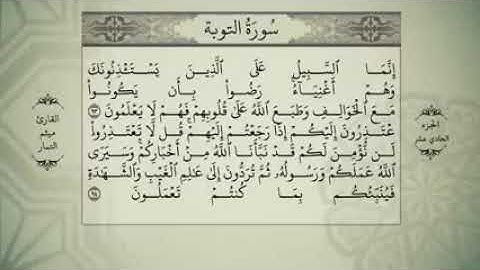 سُورَةُ التوبة
إِنَّمَا السَّبِيلُ عَلَى الَّذِينَ يَسْتَـْٔذِنُونَكَ
وَهُمْ أَغْنِيَاءُ رَضُوا بِأَن يَكُونُوا
مَعَ الْخَوَالِفِ وَطَبَعَ اللَّهُ عَلَى قُلُوبِهِمْ فَهُمْ لَا يَعْلَمُونَ ٩٣
يَعْتَذِرُونَ إِلَيْكُمْ إِذَا رَجَعْتُمْ إِلَيْهِمْ قُل لَّا تَعْتَذِرُوا
لَن نُّؤْمِنَ لَكُمْ قَدْ نَبَّأَنَا اللَّهُ مِنْ أَخْبَارِكُمْ وَسَيَرَى
اللَّهُ عَمَلَكُمْ وَرَسُولُهُ ثُمَّ تُرَدُّونَ إِلَى عَالِمِ الْغَيْبِ وَالشَّهَادَةِ
فَيُنَبِّئُكُم بِمَا كُنتُمْ تَعْمَلُونَ ٩٤
الجزء
الحادي عشر
القارئ
ميثم
التمار